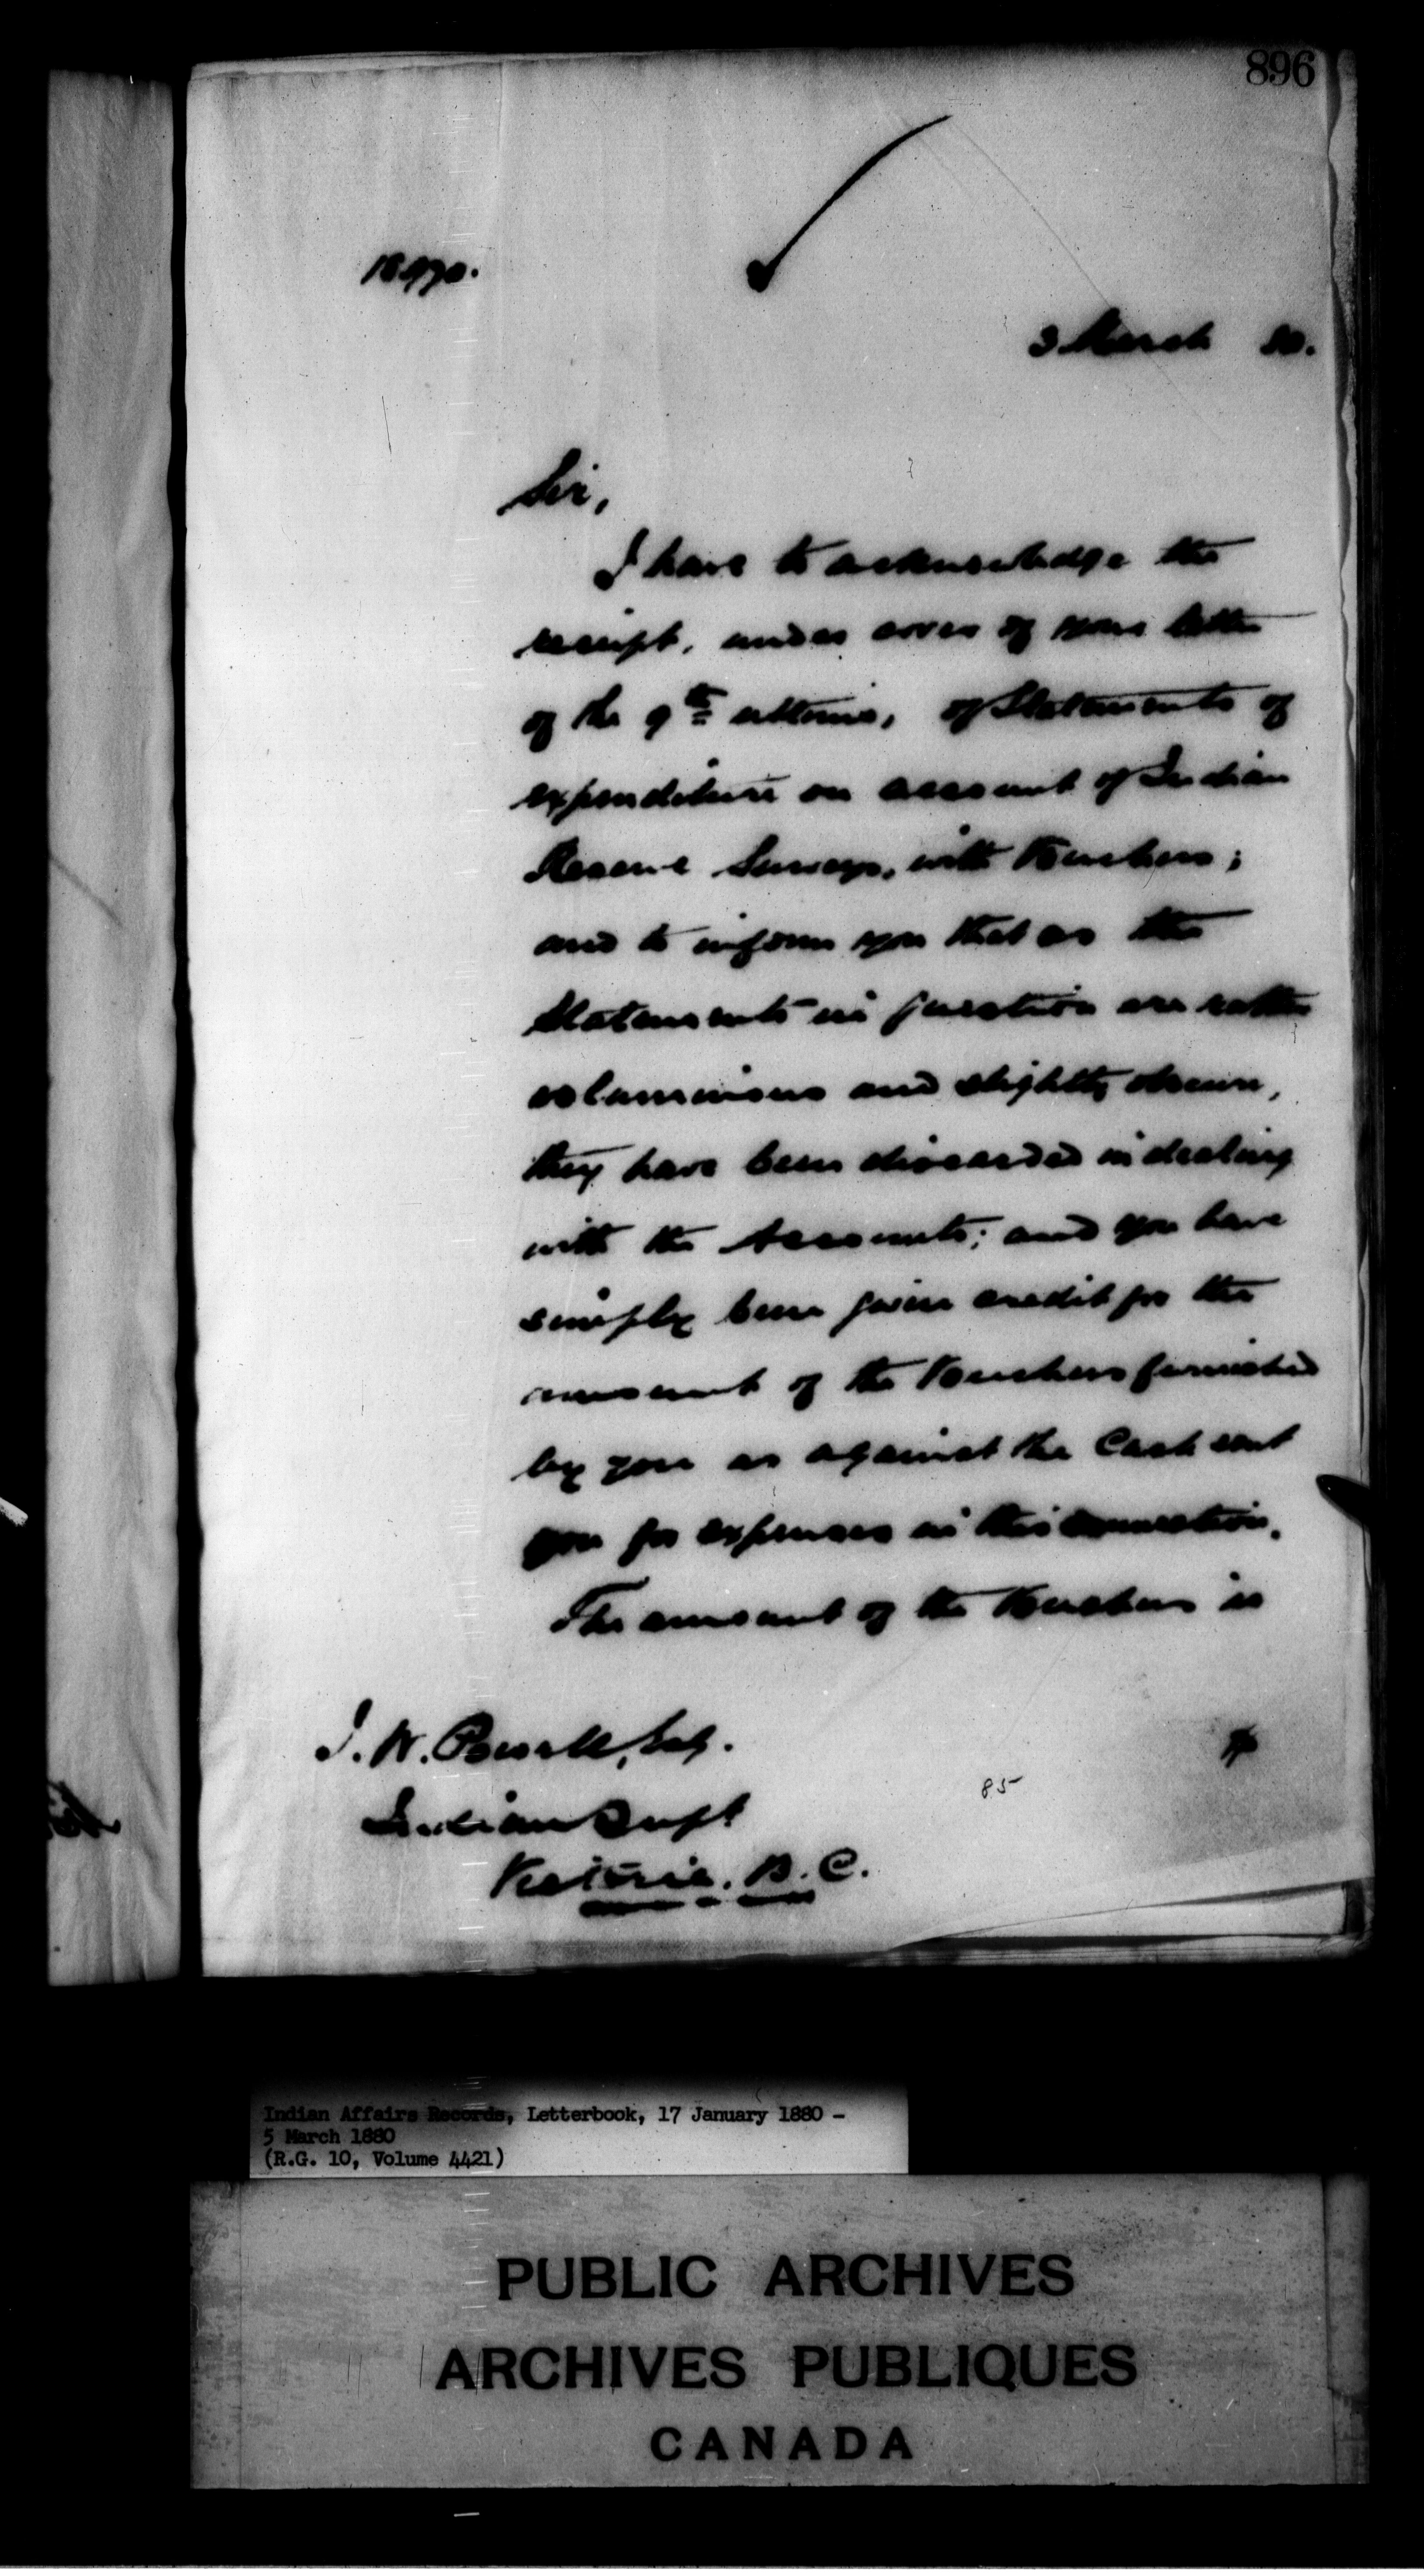 896
3 March 80.
Sir,
I have to acknowledge the
receipt, under cover of your letter
of the 9th ultimo, of Statements of
expenditure on account of Indian
Reserve Surveys, with Vouchers;
and to inform you that as the
Statements in question are rather
voluminous and slightly obscure,
they have been discarded in dealing
with the Accounts; and you have
simply been given credit for the
amount of the Vouchers furnished
by you as against the Cash sent
you for expenses in this connection.
The amount of the Vouchers is
I. W. Powell, Esq.
85
Indian Supt
Victoria. B. C.
Indian Affairs Records, Letterbook, 17 January 1880 -
5 March 1880
(R.G. 10, Volume 4421)
PUBLIC ARCHIVES
ARCHIVES PUBLIQUES
CANADA